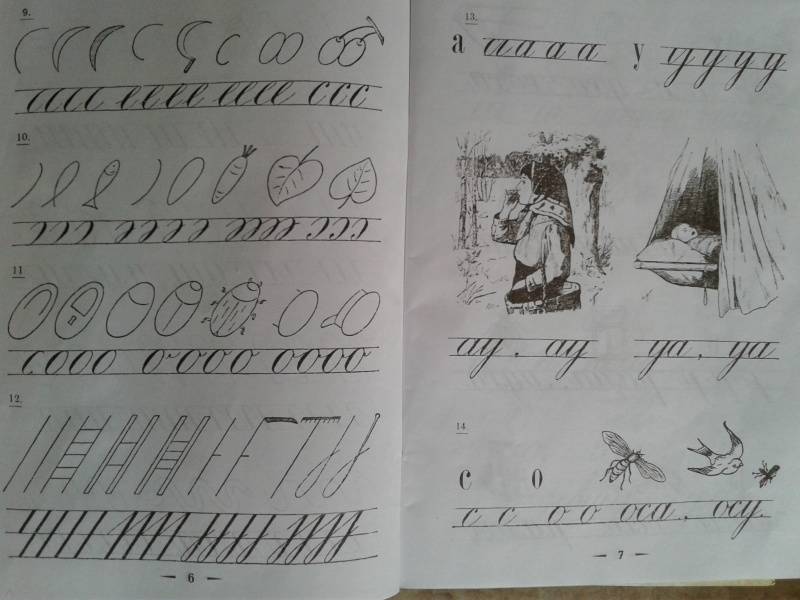 9.
10.
11
12.
— 6 —
13.
а а а а а у у у у у
ау. ау уа. уа
14
с о
с с о о оса. осу.
— 7 —